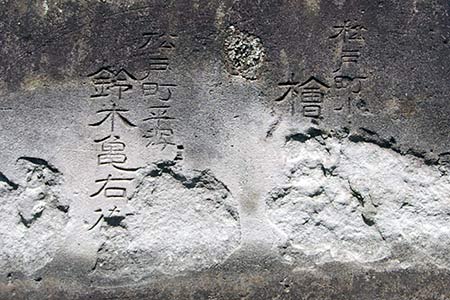 松戸町小
檜
松戸町平潟
鈴木亀右